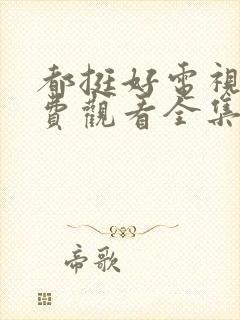 都挺好電視
費觀看全集
帝歌